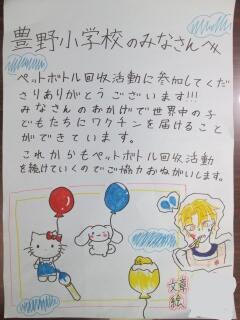 豊野小学校のみなさんへ
ペットボトル回収活動に参加してくだ
さりありがとうございます!!!
みなさんのおかげで世界中の子
どもたちにワクチンを届けること
ができています。
これからもペットボトル回収活動
を続けていくのでご協力おねがいします。
文章
絵